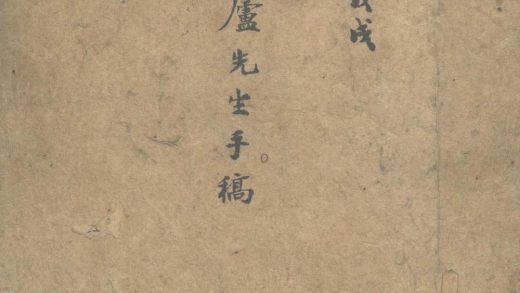 戊戌
廬先生手稿